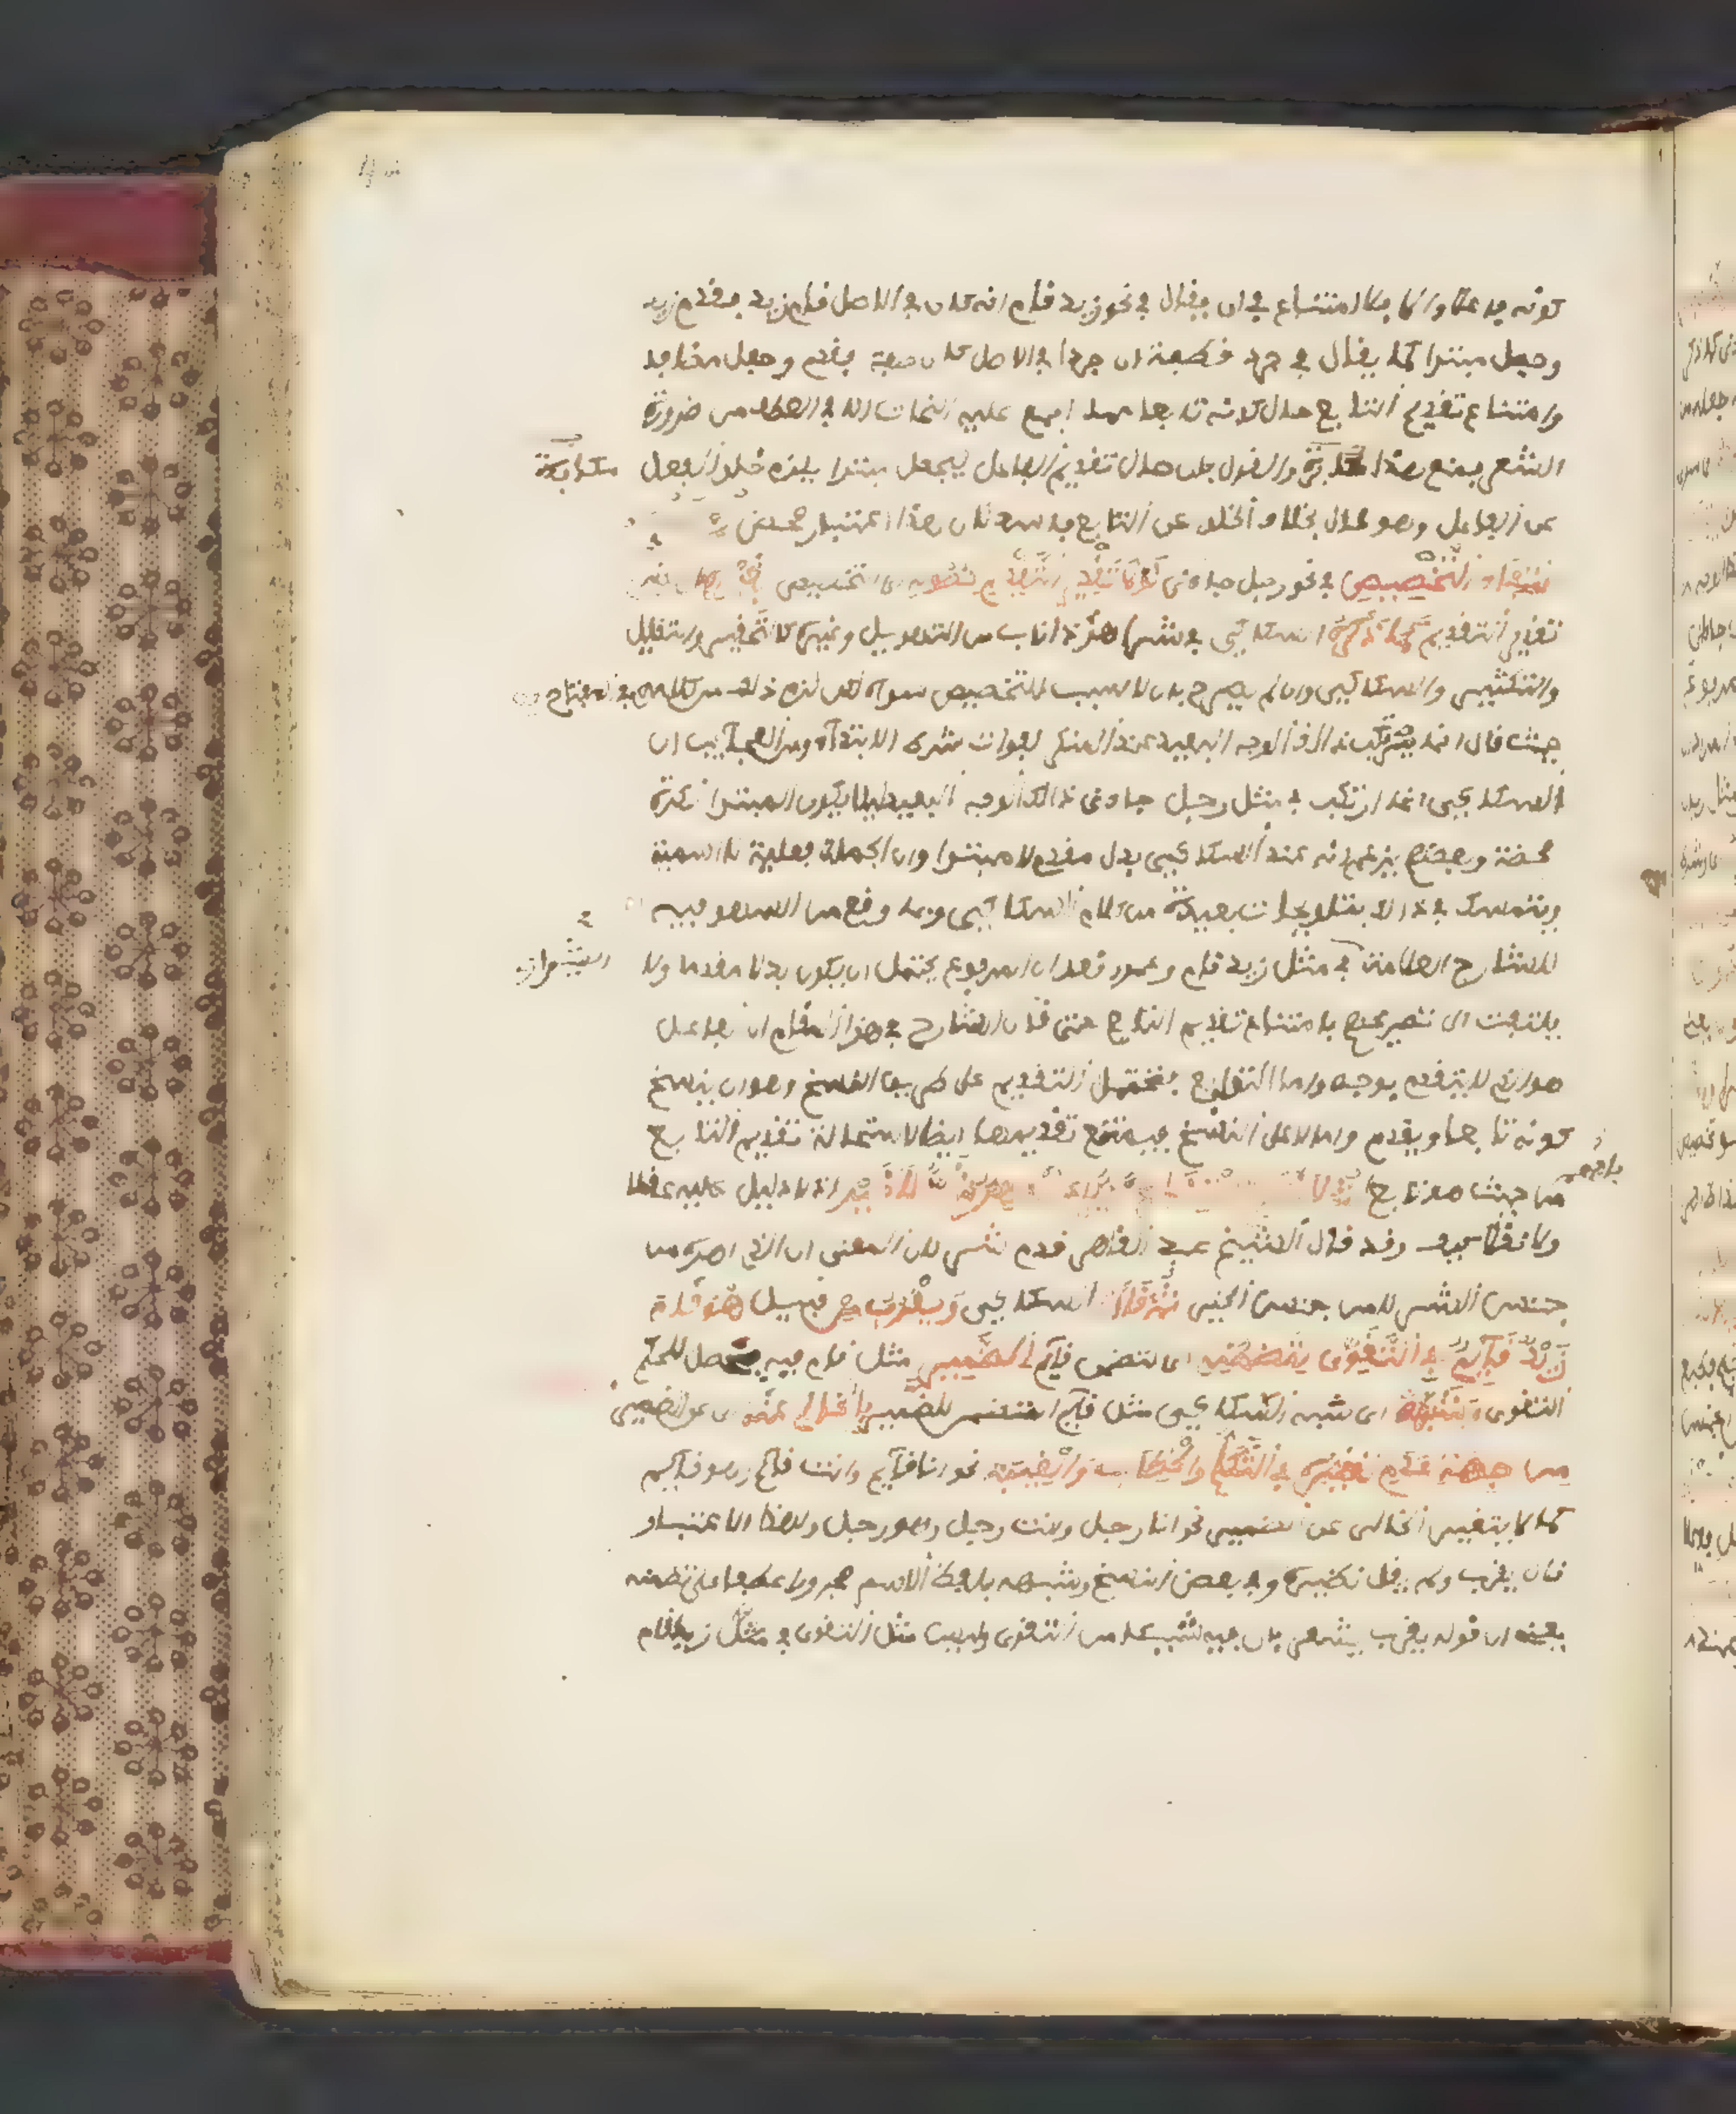 كونه فاعلا والا فلا امتناع في ان يقال في نحو زيد قام انه كان في الاصل قام زيد فقدم زيد
وجعل مبتدا كما يقال في جرد قطيفة ان جردا في الاصل كان صفة فقدم وجعل مضافا
وامتناع تقديم التابع حال كونه تابعا مما اجمع عليه النحاة الا في العطف من ضرورة
الشعر فمنع هذا مكابرة والقول بان حال تقديم الفاعل ليجعل مبتدا يلزم خلو الفعل مكابرة
عن الفاعل وهو محال بخلاف الخلو عن التابع فاسد لان هذا اعتبار محض
التخصيص في نحو رجل جاءني لولا تقدير التقديم التخصيص
تقدير التقديم كما ذكره السكاكي في شر اهر ذا ناب من التهويل وغيره كالتحقير والتقليل
والتكثير والسكاكي وان لم يصرح بان لا سبب للتخصيص سواه لكن لزم ذلك من كلامه في المفتاح
حيث قال انما يرتكب ذلك الوجه البعيد عند المنكر لفوات شرط الابتداء ومن العجايب ان
السكاكي انما ارتكب في مثل رجل جاءني ذلك الوجه البعيد ليلا يكون المبتدا نكرة
محضة وبعضهم يزعم انه عند السكاكي بدل مقدم لا مبتدا وان الجملة فعلية لا اسمية
ويتمسك في ذلك بتلويحات بعيدة من كلام السكاكي وبما وقع من السهو فيه
للشارح العلامة في مثل زيد قام وعمرو قعد ان المرفوع يحتمل ان يكون بدلا مقدما ولا
يلتفت الى تصريحهم بامتناع تقديم التابع حتى قال الشارح في هذا المقام ان الفاعل
هو الذي لا يتقدم بوجه واما التوابع فتحتمل التقديم على طريق الفسخ وهو ان ينسخ
كونه تابعا ويقدم واما لا على الفسخ فيمتنع تقديمها ايضا لاستحالة تقديم التابع
من حيث هو تابع اذ لا دليل عليه عقلا
ولا نقلا وقد قال الشيخ عبد القاهر قدم شر لان المعنى ان الذي اهره من
جنس الشر لا من جنس الخير ثم قال السكاكي ويقرب من قبيل هو قام
زيد قايم في التقوي لتضمنه اي لتضمن قايم الضمير مثل قام فيه يحصل للحكم
التقوى وشبهه اي شبه السكاكي مثل قايم المتضمن للضمير بالخالي عنه اي عن الضمير
من جهة عدم تغيره في التكلم والخطاب والغيبة نحو انا قايم وانت قايم وهو قايم
كما لا يتغير الخالي عن الضمير نحو انا رجل وانت رجل وهو رجل وبهذا الاعتبار
قال يقرب ولم يقل نظيره وفي بعض النسخ وشبهه بلفظ الاسم مجرورا عطفا على تضمنه
يعني ان قوله يقرب يشعر بان فيه شيئا من التقوي وليس مثل التقوي في مثل زيد قام